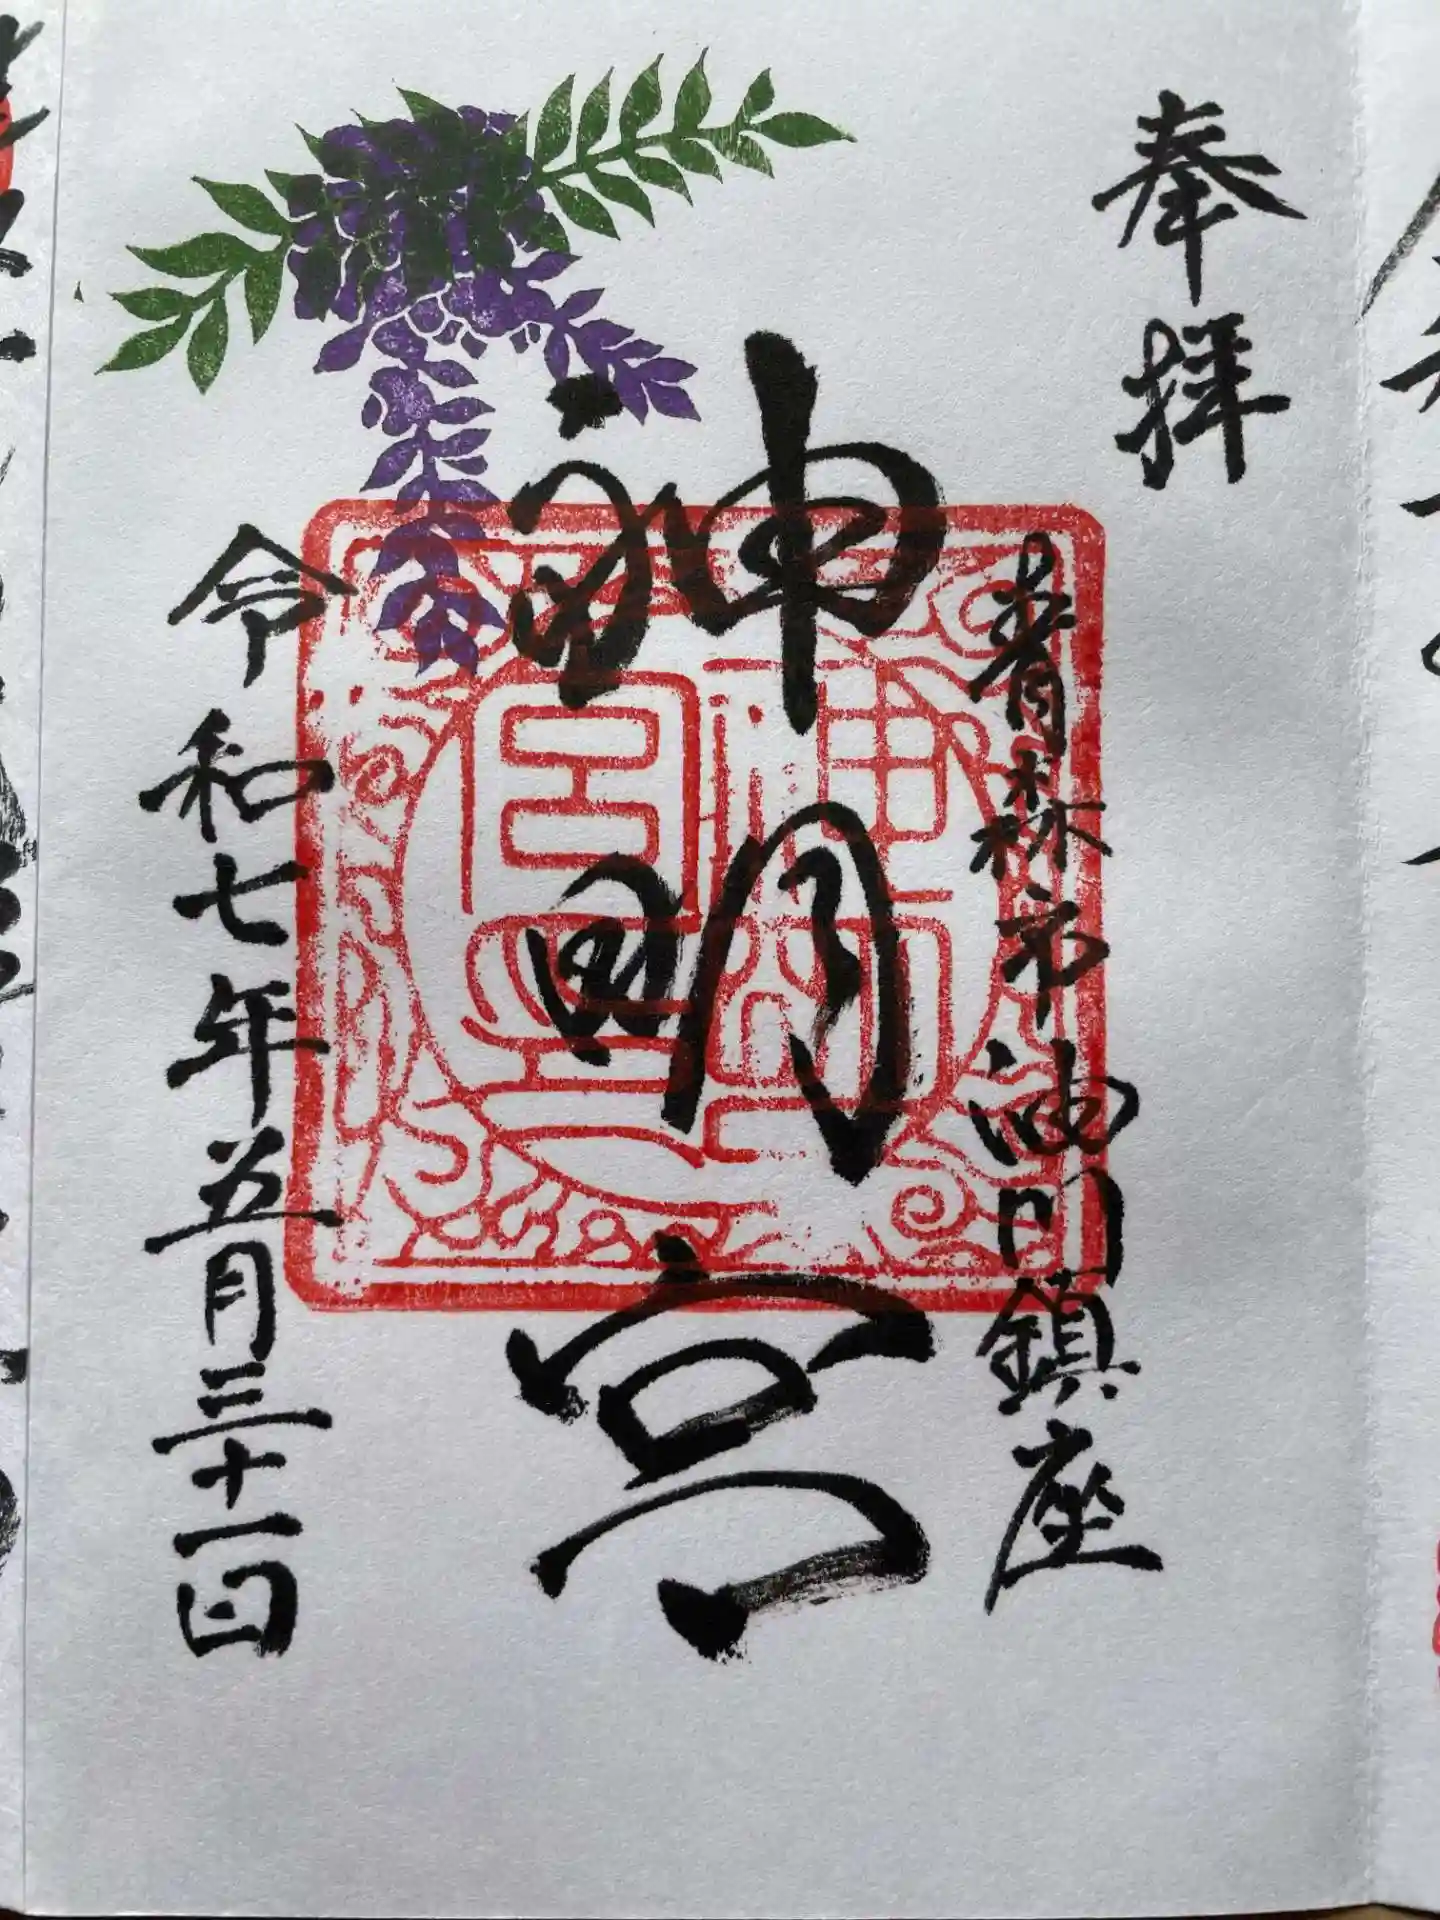 奉拝
青森市油川鎮座
神明宮
令和七年五月三十一日